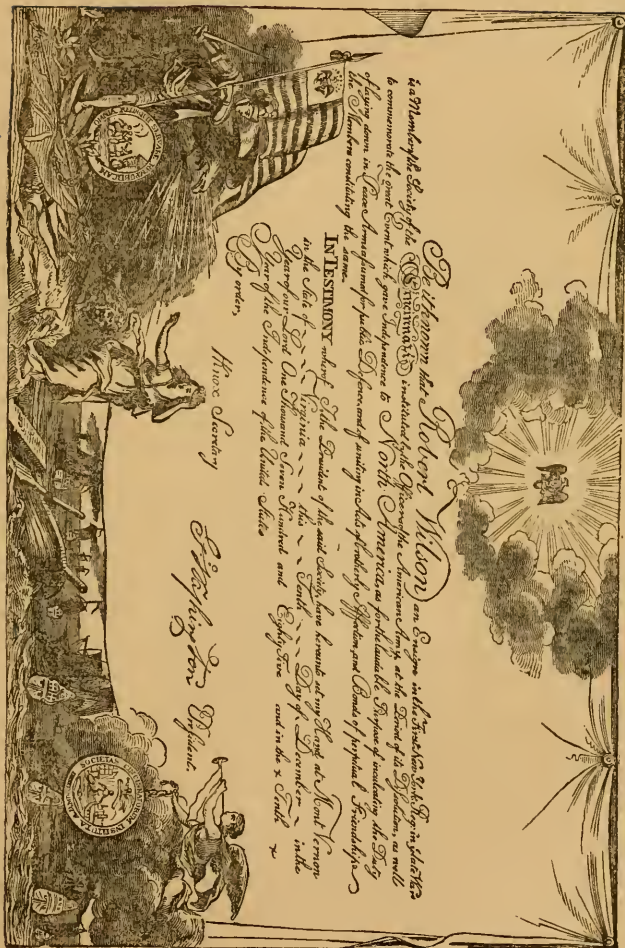 Be it known that Robert Wilson an Ensign in the First New York Reg. in ye late War
is a Member of the Society of the Cincinnati instituted by the Officers of the American Army, at the Period of its Dissolution, as well
to commemorate the great Event which gave Independence to North America, as for the laudable Purpose of inculcating the Duty
of laying down in Peace Arms assumed for public Defence, and of uniting in Acts of brotherly Affection, and Bonds of perpetual Friendship
the Members constituting the same.
IN TESTIMONY whereof I the President of the said Society have hereunto set my Hand at Mont Vernon
in the State of Virginia this Tenth Day of December in the
Year of our Lord One Thousand Seven Hundred and Eighty Five and in the Tenth
Year of the Independence of the United States
By order,
Knox Secretary
G Washington President.
SOCIETAS INSTITUTA